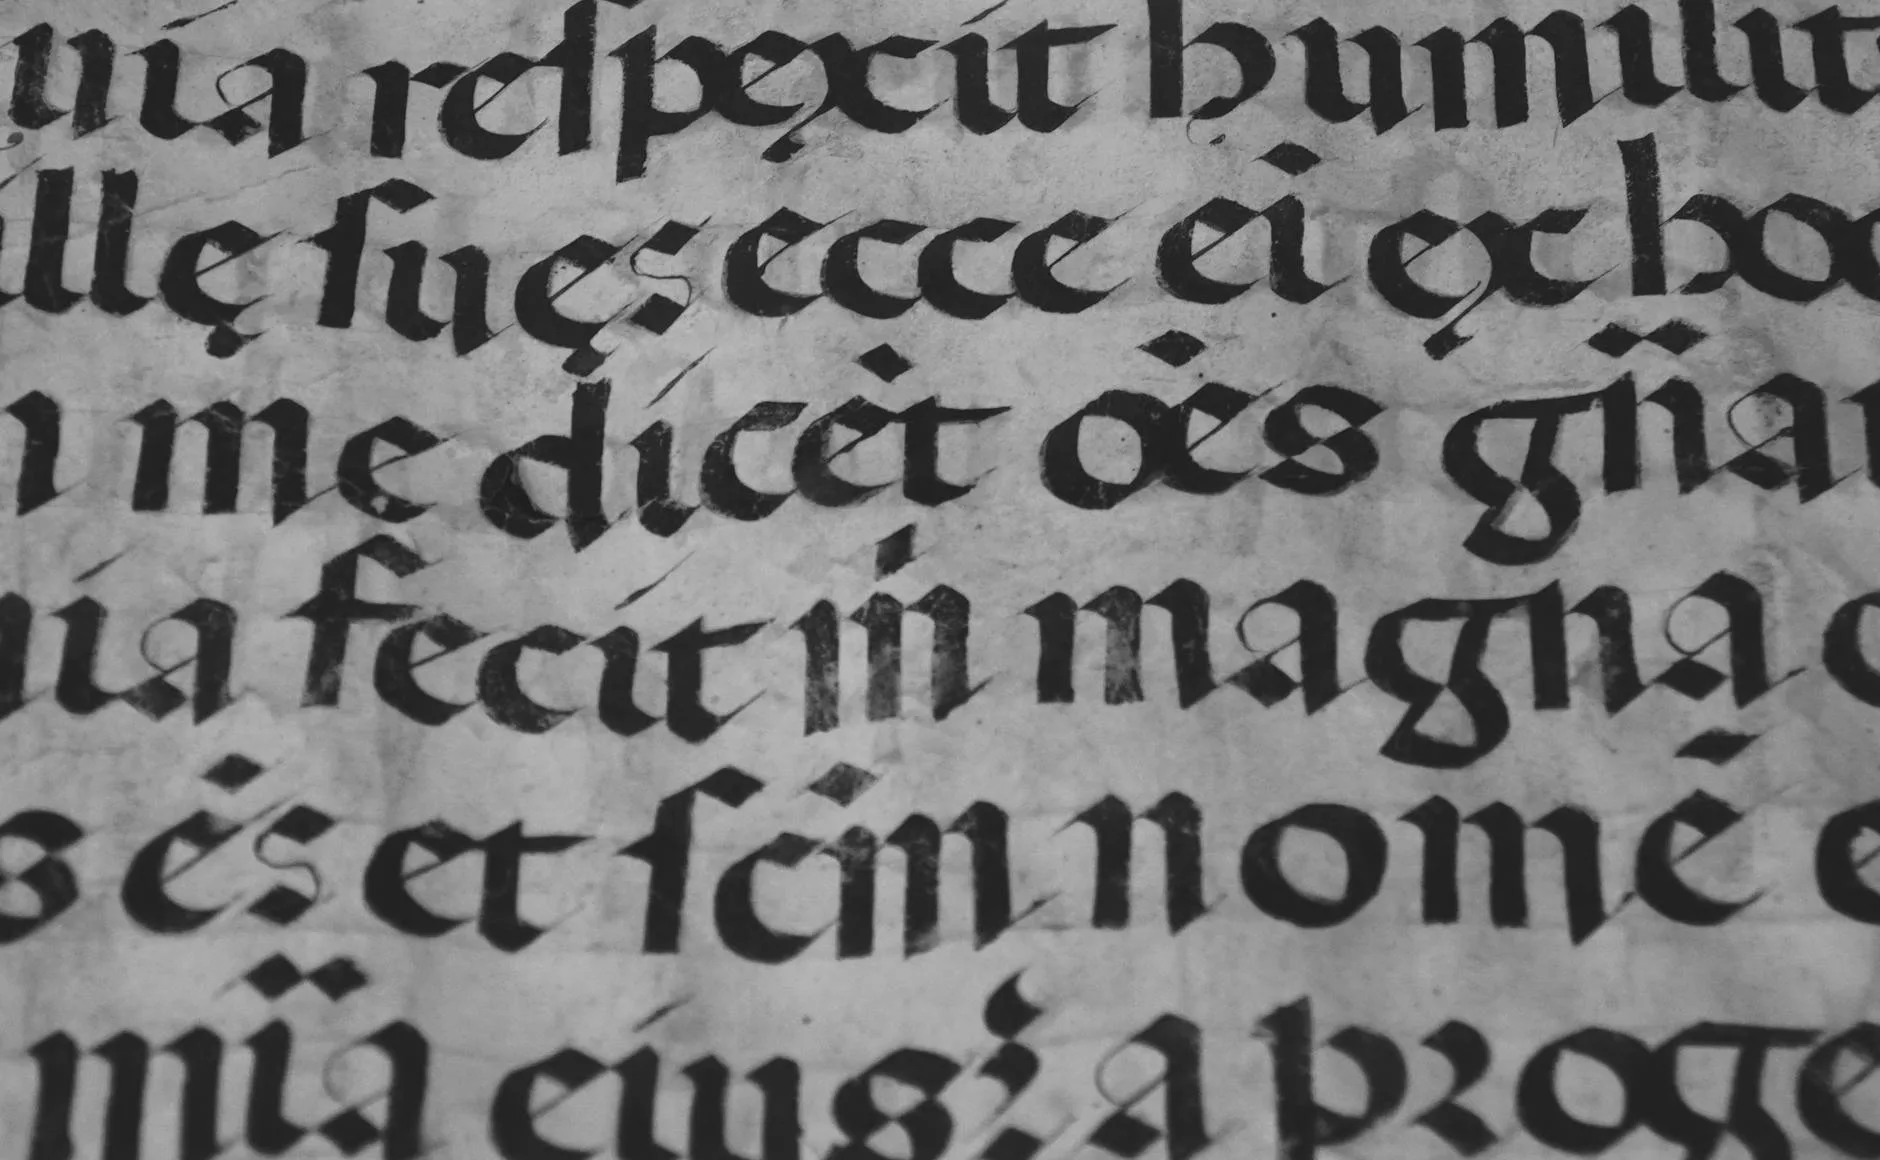 uia reſpęxit humilit
illę ſuęs ecce ei ęx hoc
i me dicėt oės gn̈a
uia fecit m̍ magna
s ės et ſcm̍ nomē e
m̈ia eius: a proge